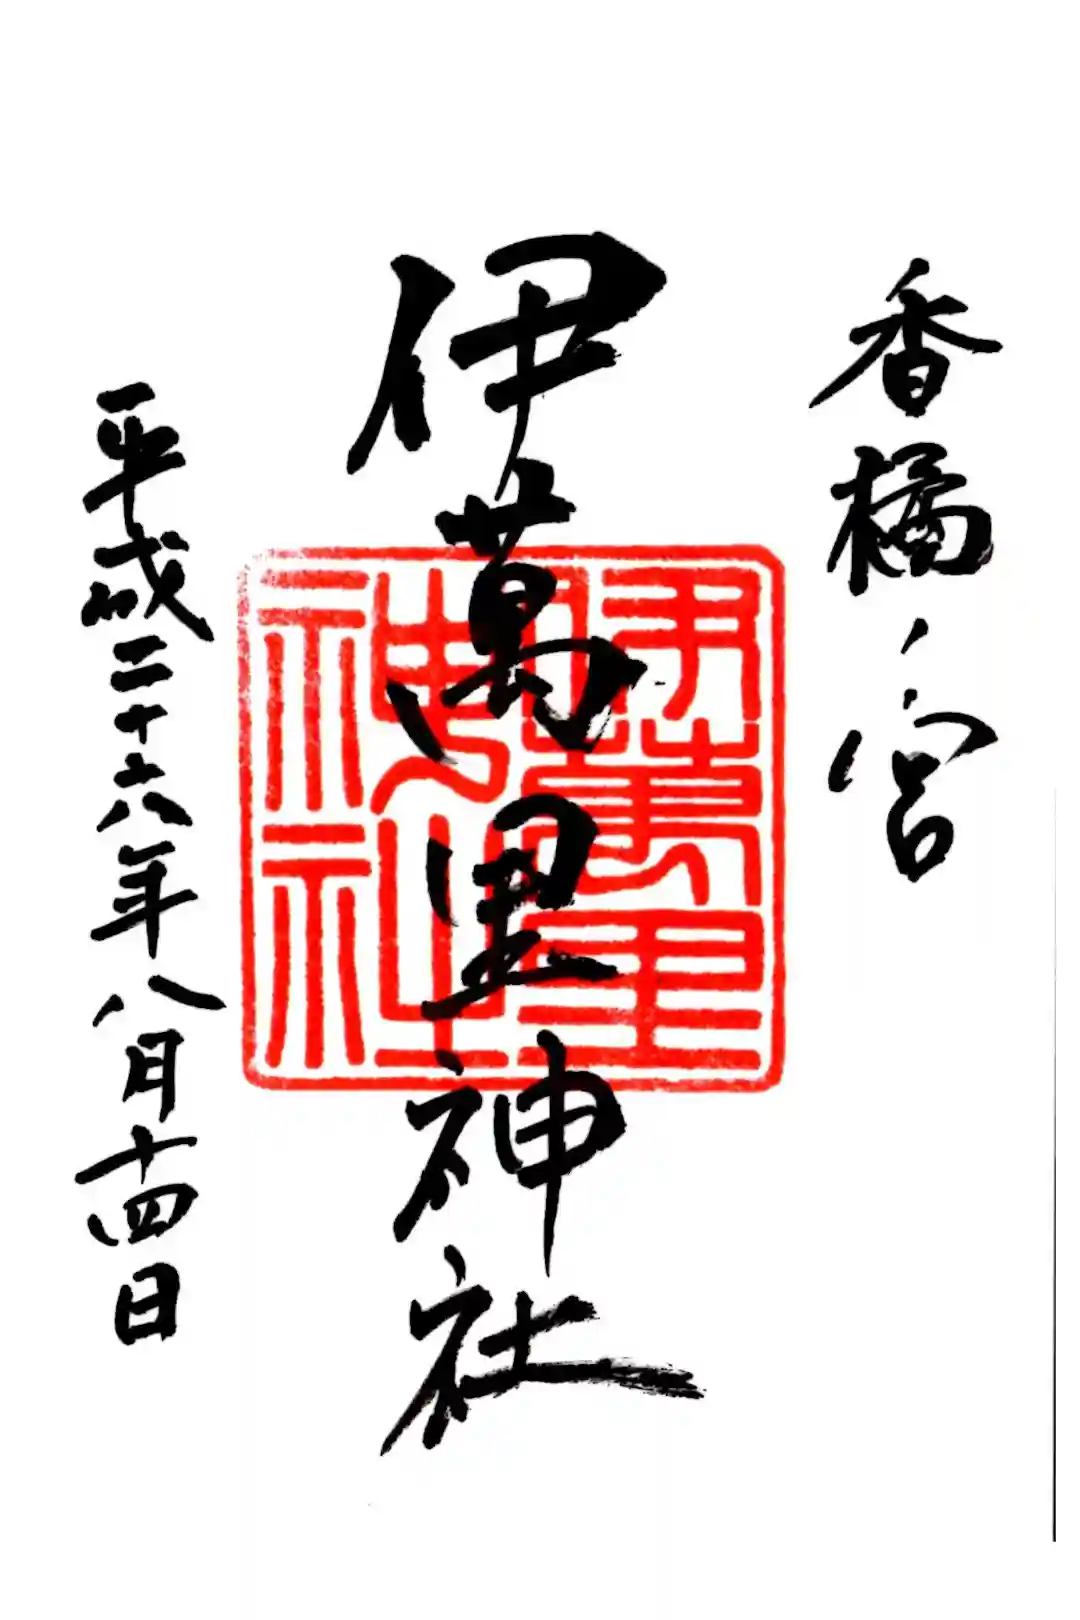 香橘ノ宮
伊萬里神社
伊萬里神社
平成二十六年八月十四日